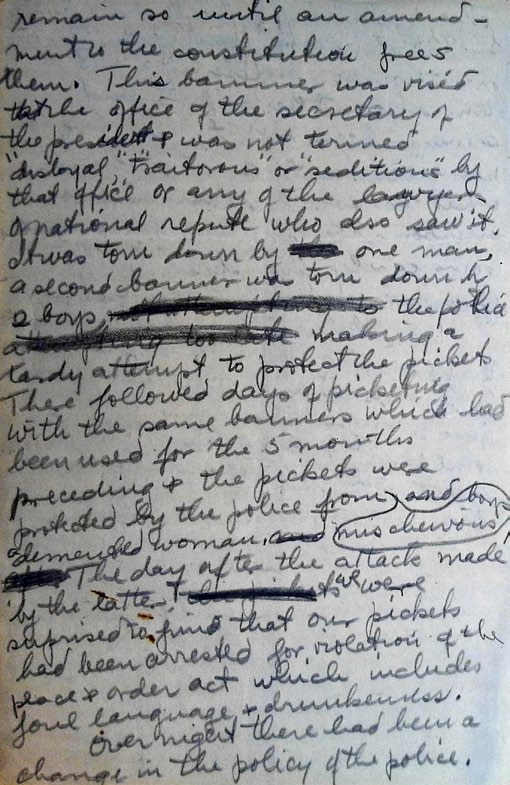 remain so until an amend-
ment to the constitution frees
them. This banner was visid
the office of the secretary of
the president & was not termed
"disloyal," "traitorous" or "seditious" by
that office or any of the lawyers
of national repute who also saw it.
It was torn down by one man,
a second banner was torn down by
2 boys, the police
making a
tardy attempt to protect the pickets
There followed days of picketing
with the same banners which had
been used for the 5 months
preceding & the pickets were
protected by the police from and boys
a demented woman, and mischeivous
The day after the attack made
by the latter, we were
suprised to find that our pickets
had been arrested for violation of the
peace & order act which includes
foul language & drunkenness.
Over night there had been a
change in the policy of the police.